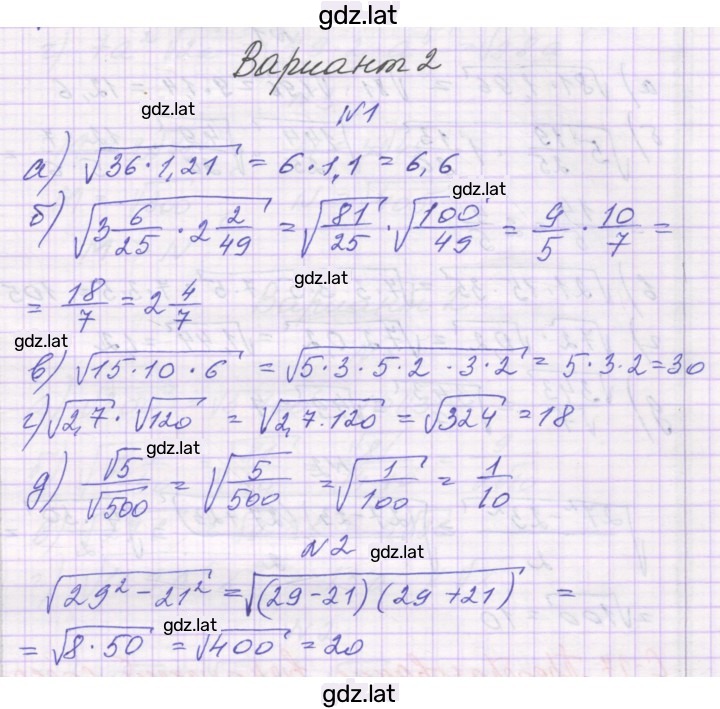 gdz.lat
Вариант 2
gdz.lat
№1
а) √(36·1,21) = 6·1,1 = 6,6
gdz.lat
б) √(3 6/25 · 2 2/49) = √(81/25) · √(100/49) = 9/5 · 10/7 =
gdz.lat
= 18/7 = 2 4/7
gdz.lat
в) √(15·10·6) = √(5·3·5·2·3·2) = 5·3·2=30
г) √2,7 · √120 = √(2,7·120) = √324 = 18
gdz.lat
д) √5/√500 = √(5/500) = √(1/100) = 1/10
№2
gdz.lat
√(29² - 21²) = √((29-21)(29+21)) =
gdz.lat
= √(8·50) = √400 = 20
gdz.lat